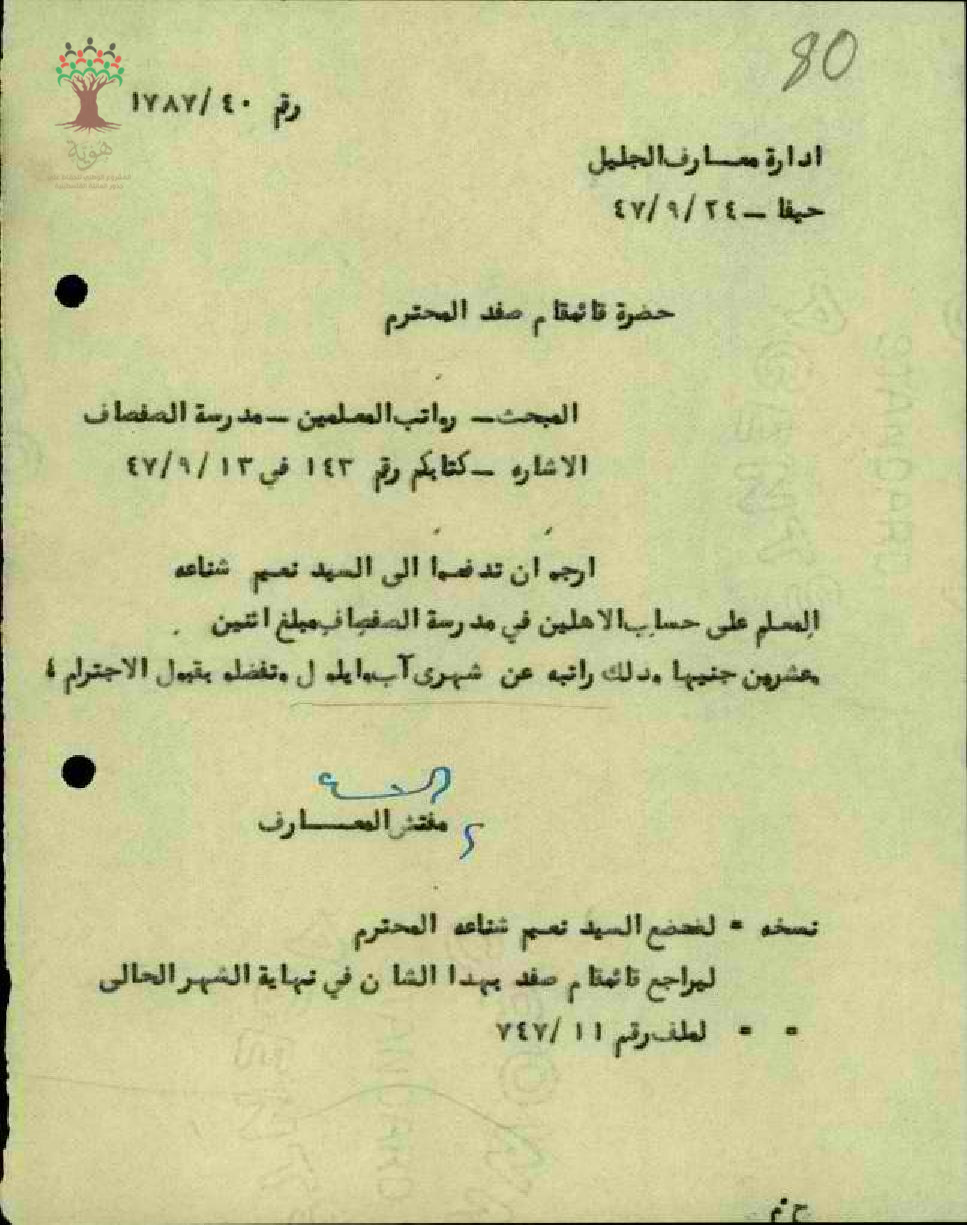 80
هوية
رقم ١٧٨٧/٤٠
ادارة معارف الجليل
حيفا - ٤٧/٩/٢٤
حضرة قائمقام صفد المحترم
المبحث - رواتب المعلمين - مدرسة الصفصاف
الاشاره - كتابكم رقم ١٤٣ في ٤٧/٩/١٣
ارجو ان تدفعوا الى السيد نعيم شناعه
المعلم على حساب الاهلين في مدرسة الصفصاف مبلغ اثنين
وعشرين جنيها وذلك راتبه عن شهرى آب وايلول وتفضلو بقبول الاحترام ،
مفتش المعارف
نسخه = لحضرة السيد نعيم شناعه المحترم
ليراجع قائمقام صفد بهذا الشان في نهاية الشهر الحالى
= = لملف رقم ٧٤٧/١١
ح م